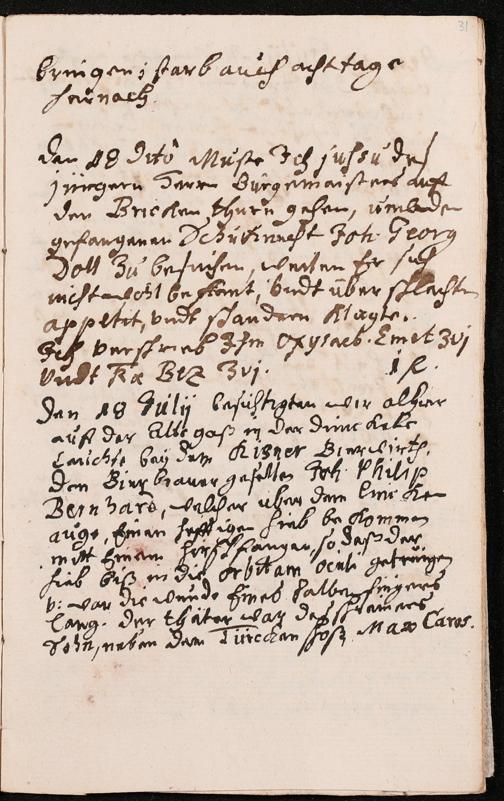 31
bringen; starb auch acht tage
hernach.
den 18 Dito Muste Ich jussu deß
jüngern Herrn Bürgemaisters auf
den Brucken thurn gehen, umb den
gefangenen Schukknecht Joh. Georg
Doll zu besuchen, weilen Er sich
nicht wohl befhent, Undt über schlechten
appetit, undt schaudern Klagte.
Ich verschrieb Ihm oxysacc. Emet Ʒvj
Undt Ra Bez Ʒvj.
Den 18 Julij besichtigten wir alhier
auf der Albegaß in der
bey dem Bierwirth,
den Bierbrauer gesellen Joh. Philip
Bernhard, welcher über dem lincken
auge, Einen hefftigen hieb bekommen
mitt Einem Hirschfänger, so daß der
hieb biß in die orbitam oculi getrungen
v: war die wunde Eines halben fingers
lang. der thäter war deß
Sohn, neben dem Türcken Max Caros.